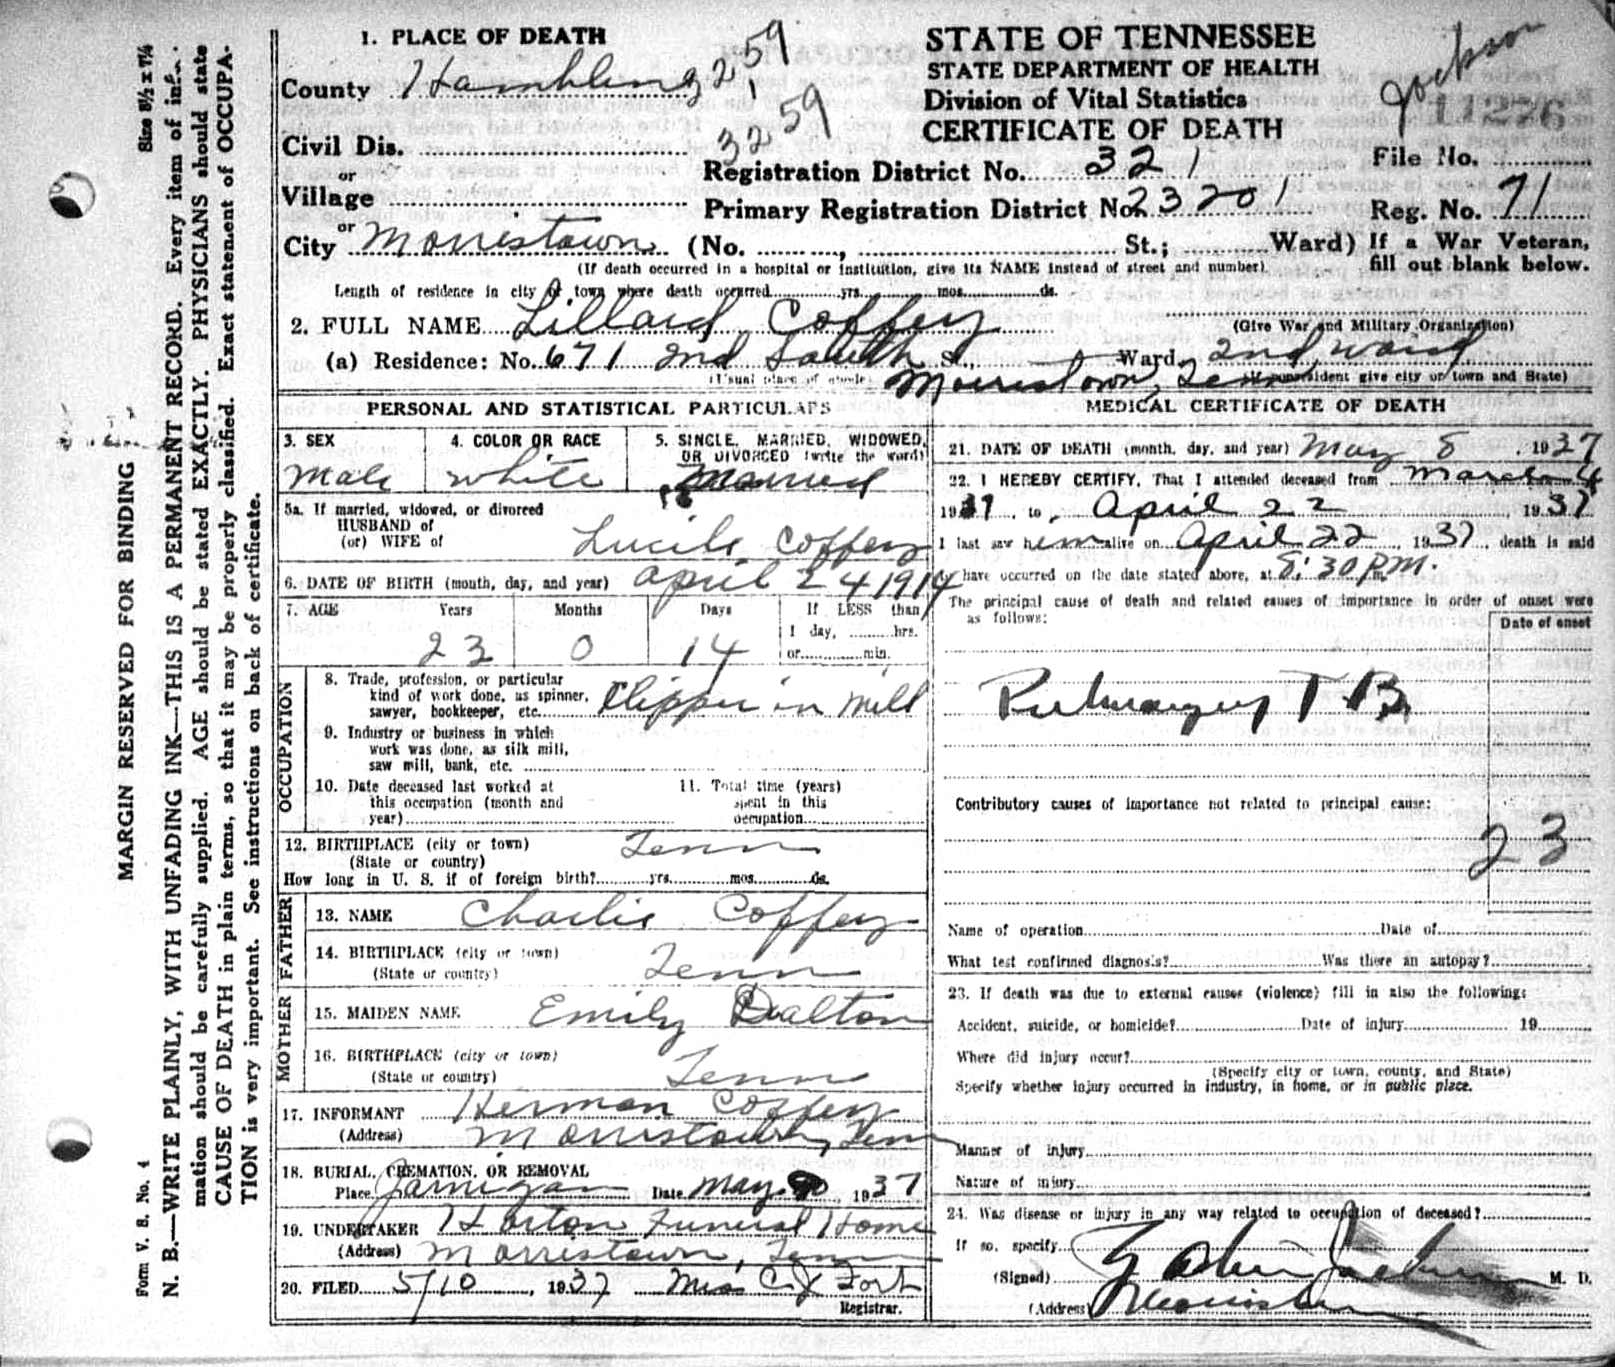 1. PLACE OF DEATH
County Hamblen 32 1 59
Civil Dis. 32 59
or
Village
or
City Morristown (No. , St.; Ward)
(If death occurred in a hospital or institution, give its NAME instead of street and number).
STATE OF TENNESSEE
STATE DEPARTMENT OF HEALTH
Division of Vital Statistics
CERTIFICATE OF DEATH
Registration District No. 321
Primary Registration District No. 23201
Jackson
11276
File No.
Reg. No. 71
If a War Veteran,
fill out blank below.
Length of residence in city or town where death occurred yrs. mos. ds.
2. FULL NAME Lillard Coffey
(Give War and Military Organization)
(a) Residence: No. 671 2nd South St., Ward, 2nd ward
(Usual place of abode) Morristown, Tenn (If nonresident give city or town and State)
PERSONAL AND STATISTICAL PARTICULARS
3. SEX
Male
4. COLOR OR RACE
white
5. SINGLE, MARRIED, WIDOWED,
OR DIVORCED (write the word)
Married
5a. If married, widowed, or divorced
HUSBAND of
(or) WIFE of Lucile Coffey
6. DATE OF BIRTH (month, day, and year) April 24 1914
7. AGE Years Months Days If LESS than
1 day, hrs.
23 0 14 or min.
OCCUPATION
8. Trade, profession, or particular
kind of work done, as spinner,
sawyer, bookkeeper, etc. Clipper in mill
9. Industry or business in which
work was done, as silk mill,
saw mill, bank, etc.
10. Date deceased last worked at
this occupation (month and
year)
11. Total time (years)
spent in this
occupation
12. BIRTHPLACE (city or town) Tenn
(State or country)
How long in U. S. if of foreign birth? yrs. mos. ds.
FATHER
13. NAME Charlie Coffey
14. BIRTHPLACE (city or town)
(State or country) Tenn
MOTHER
15. MAIDEN NAME Emily Dalton
16. BIRTHPLACE (city or town)
(State or country) Tenn
17. INFORMANT Herman Coffey
(Address) Morristown, Tenn
18. BURIAL, CREMATION, OR REMOVAL
Place Jarnigan Date May , 1937
19. UNDERTAKER Horton Funeral Home
(Address) Morristown, Tenn
20. FILED 5/10, 1937 Fort
Registrar.
MEDICAL CERTIFICATE OF DEATH
21. DATE OF DEATH (month, day, and year) May 8, 1937
22. I HEREBY CERTIFY, That I attended deceased from March 4
1937, to April 22, 1937
I last saw him alive on April 22, 1937, death is said
to have occurred on the date stated above, at 8:30 P.M.
The principal cause of death and related causes of importance in order of onset were
as follows:
Date of onset
Pulmonary T B
Contributory causes of importance not related to principal cause:
23
Name of operation Date of
What test confirmed diagnosis? Was there an autopsy?
23. If death was due to external causes (violence) fill in also the following:
Accident, suicide, or homicide? Date of injury 19
Where did injury occur?
(Specify city or town, county, and State)
Specify whether injury occurred in industry, in home, or in public place.
Manner of injury
Nature of injury
24. Was disease or injury in any way related to occupation of deceased?
If so, specify
(Signed) M. D.
(Address)
MARGIN RESERVED FOR BINDING
Form V. S. No. 4
Size 8½ x 7¼
N. B.—WRITE PLAINLY, WITH UNFADING INK—THIS IS A PERMANENT RECORD. Every item of infor-
mation should be carefully supplied. AGE should be stated EXACTLY. PHYSICIANS should state
CAUSE OF DEATH in plain terms, so that it may be properly classified. Exact statement of OCCUPA-
TION is very important. See instructions on back of certificate.